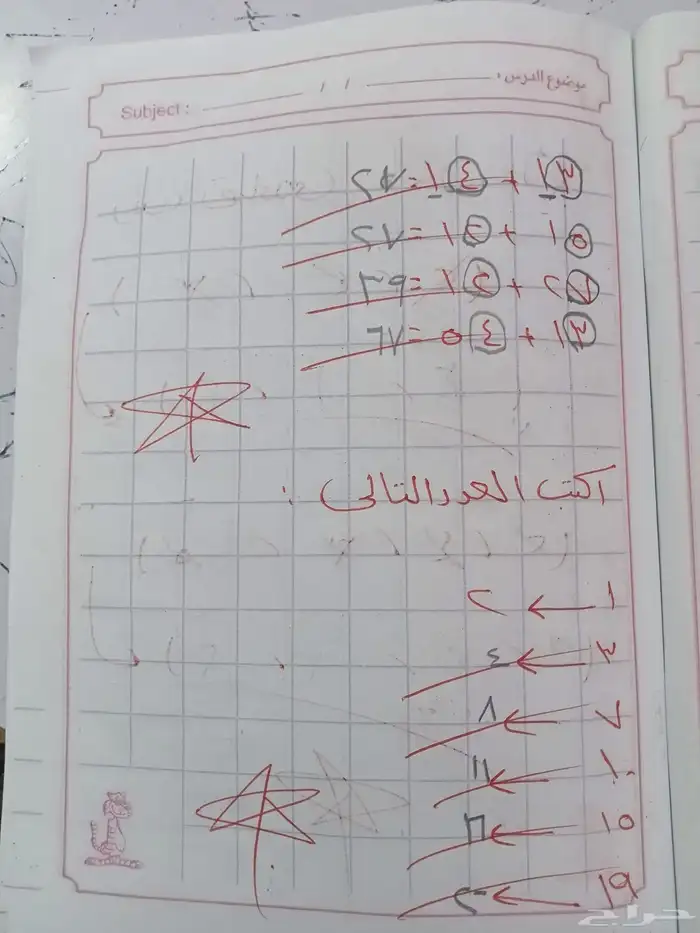 موضوع الدرس :
Subject : / /
١٣ + ١٤ = ٢٧
١٥ + ١٢ = ٢٧
٢٧ + ١٢ = ٣٩
١٣ + ٥٤ = ٦٧
اكتب العدد التالي :
١ ← ٢
٣ ← ٤
٧ ← ٨
١٠ ← ١١
١٥ ← ١٦
١٩ ← ٢٠
حراج